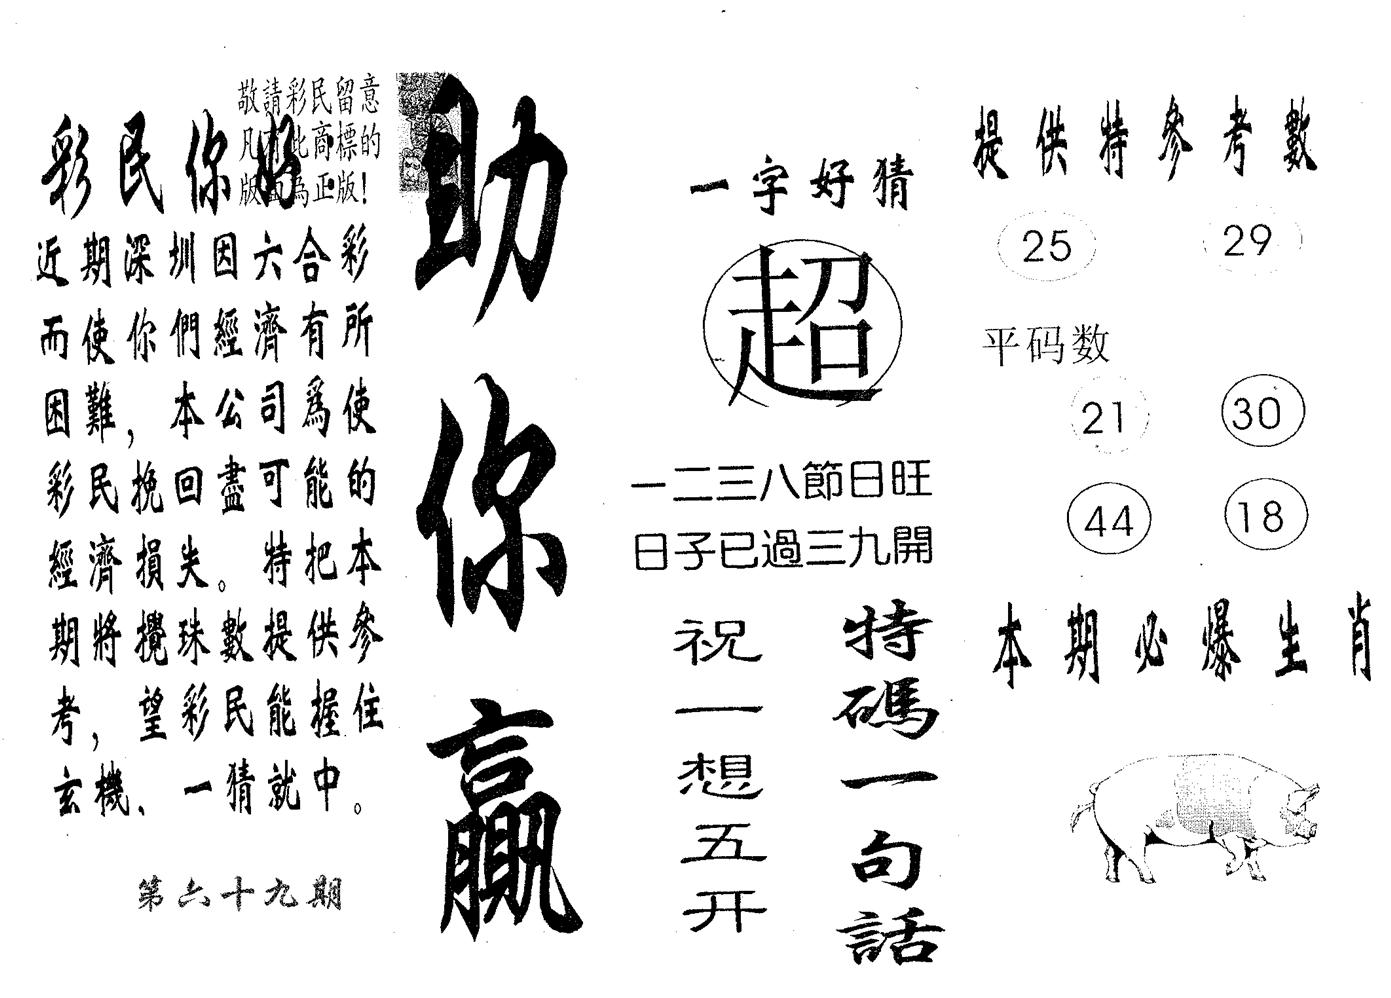 敬請彩民留意
凡有此商標的
版面為正版!
彩民你好
近期深圳因六合彩
而使你們經濟有所
困難，本公司爲使
彩民挽回盡可能的
經濟損失。特把本
期將攪珠數提供參
考，望彩民能握住
玄機、一猜就中。
第六十九期
助你贏
一字好猜
超
一二三八節日旺
日子已過三九開
特碼一句話
祝一想五开
提供特參考數
25 29
平码数
21 30
44 18
本期必爆生肖